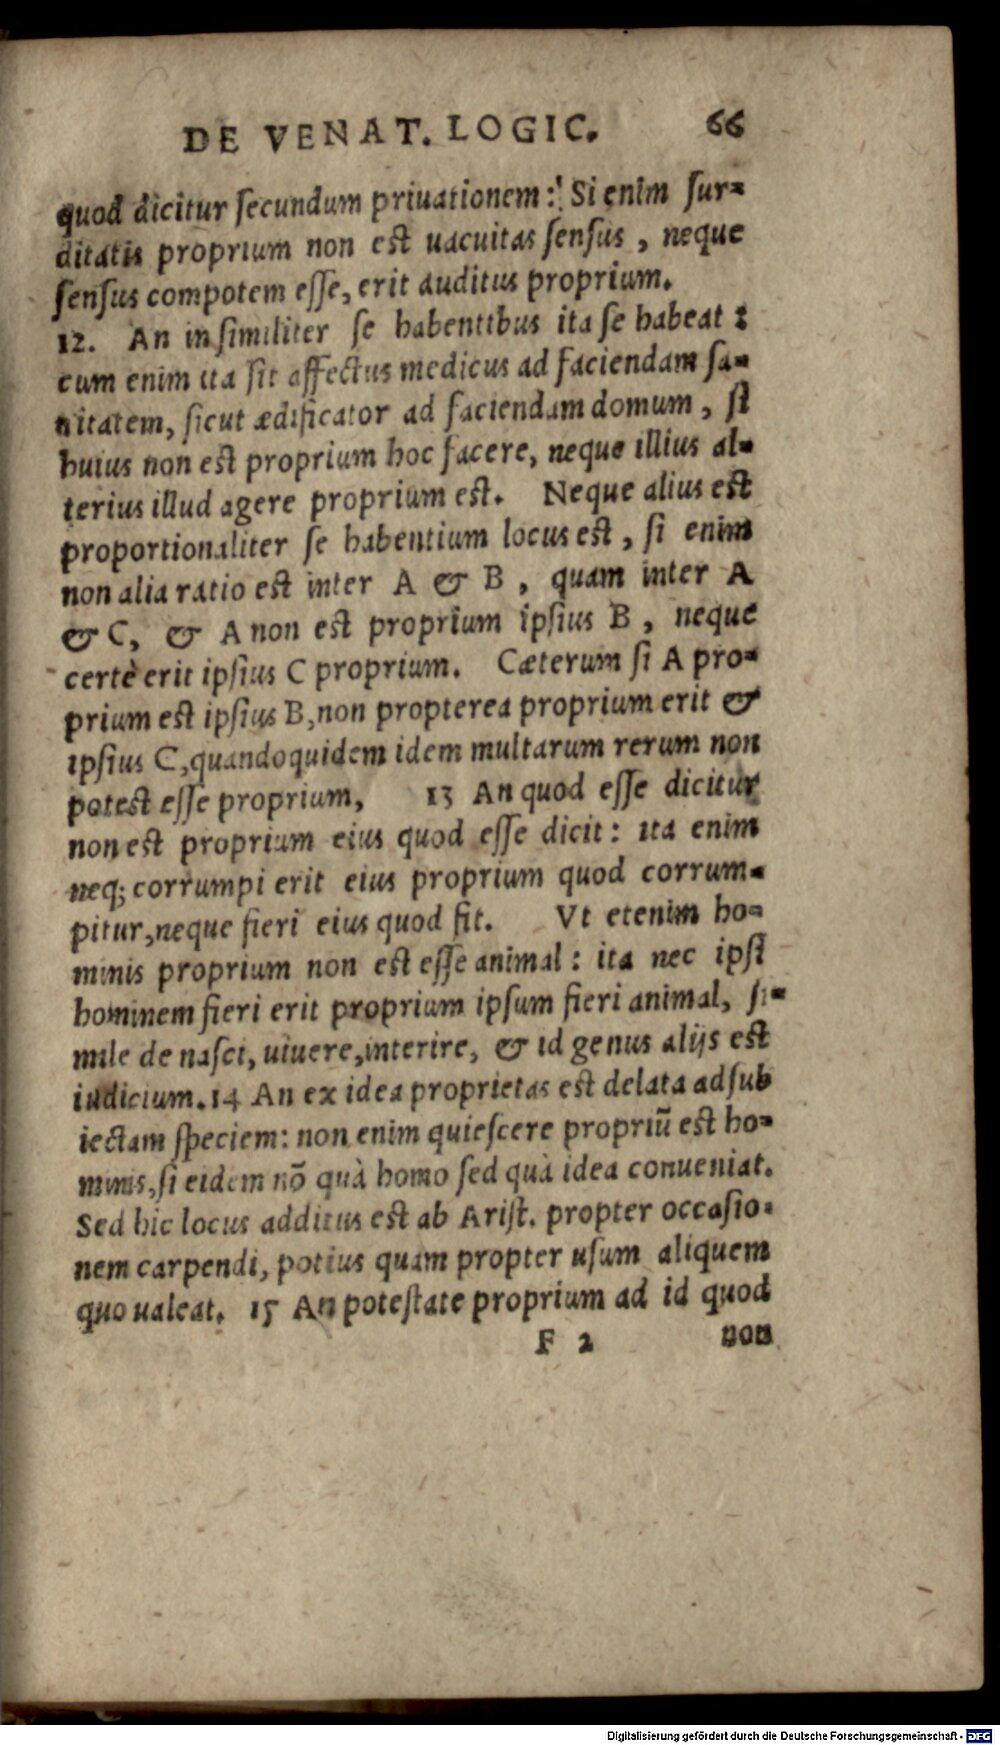 DE VENAT. LOGIC. 66
quod dicitur ſecundum priuationem: Si enim ſur-
ditatis proprium non est uacuitas ſenſus, neque
ſenſus compotem eſſe, erit auditus proprium.
12. An in ſimiliter ſe habentibus ita ſe habeat:
cum enim ita ſit affectus medicus ad faciendam ſa-
nitatem, ſicut ædificator ad faciendam domum, ſi
huius non est proprium hoc facere, neque illius al-
terius illud agere proprium est. Neque alius est
proportionaliter ſe habentium locus est, ſi enim
non alia ratio est inter A & B, quam inter A
& C, & A non est proprium ipſius B, neque
certè erit ipſius C proprium. Cæterum ſi A pro-
prium est ipſius B, non propterea proprium erit &
ipſius C, quandoquidem idem multarum rerum non
potest eſſe proprium, 13 An quod eſſe dicitur
non est proprium eius quod eſſe dicit: ita enim
neq; corrumpi erit eius proprium quod corrum-
pitur, neque fieri eius quod fit. Vt etenim ho-
minis proprium non est eſſe animal: ita nec ipſi
hominem fieri erit proprium ipſum fieri animal, ſi-
mile de naſci, uiuere, interire, & id genus alijs est
iudicium. 14 An ex idea proprietas est delata ad ſub
iectam ſpeciem: non enim quieſcere propriũ est ho-
minis, ſi eidem nõ quà homo ſed quà idea conueniat.
Sed hic locus additus est ab Ariſt. propter occaſio-
nem carpendi, potius quam propter uſum aliquem
quo ualeat. 15 An poteſtate proprium ad id quod
F 2 non
Digitalisierung gefördert durch die Deutsche Forschungsgemeinschaft - DFG